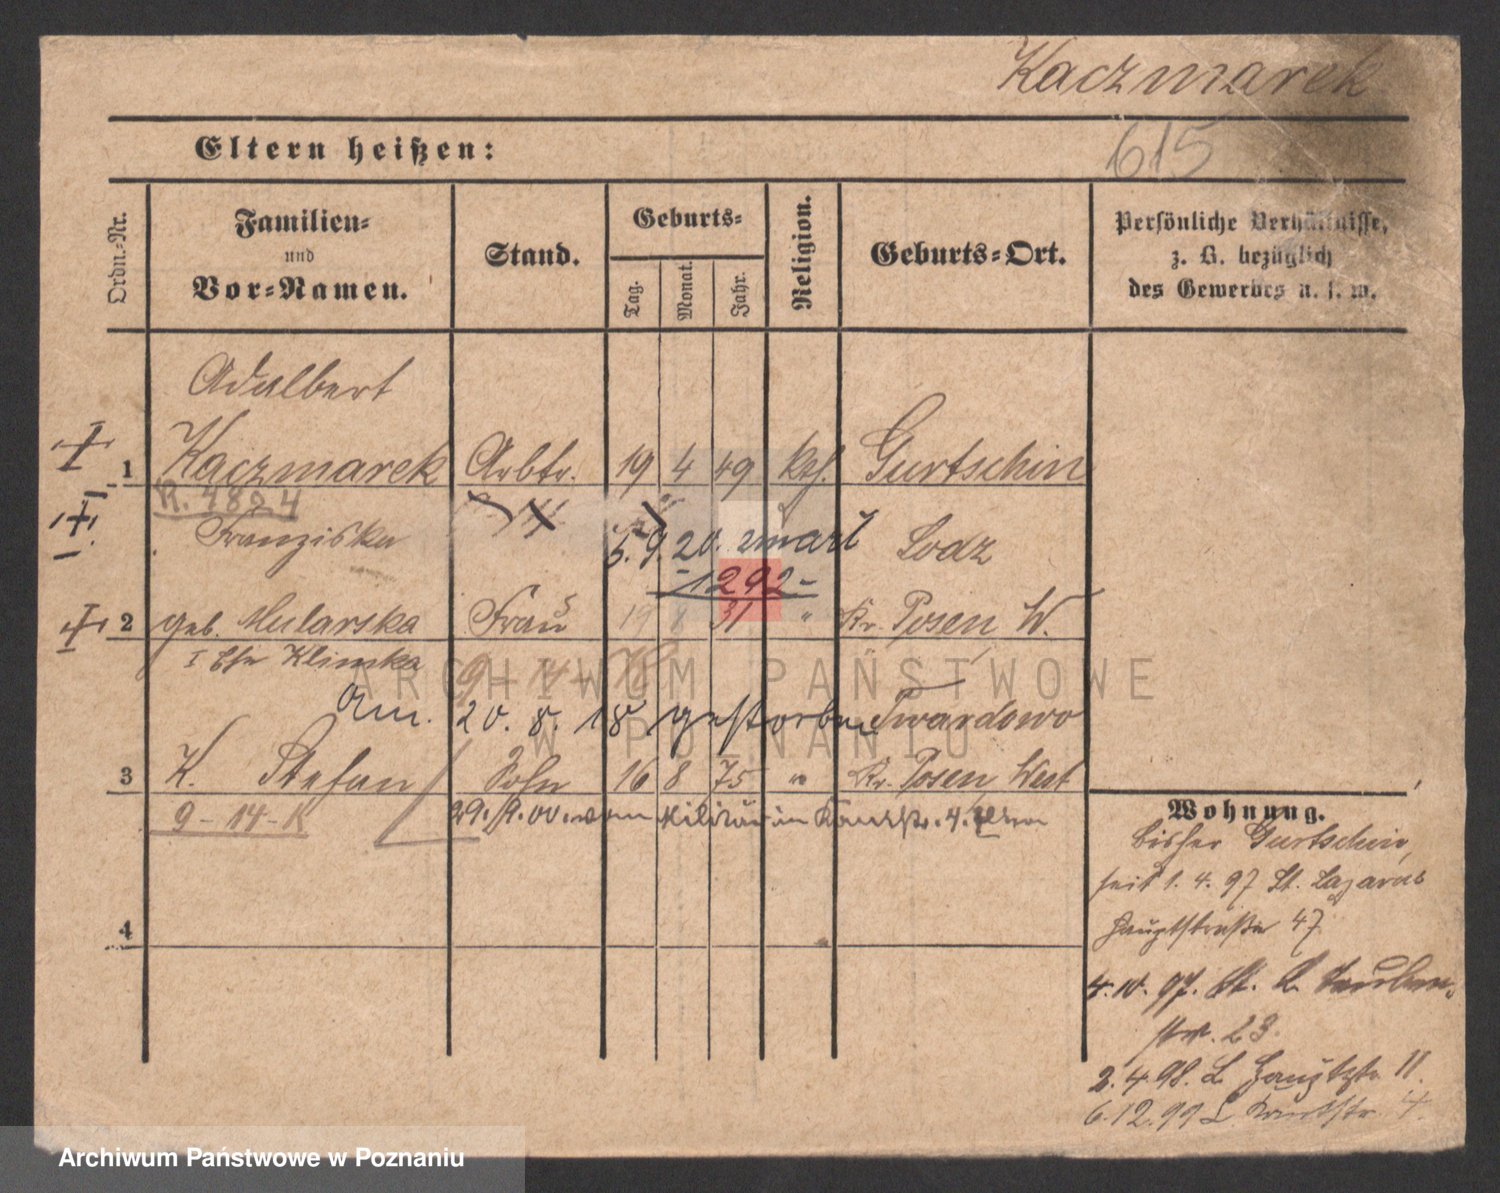 Kaczmarek
615
Eltern heißen:
Ordn.=Nr.
Familien=
und
Vor=Namen.
Stand.
Geburts=
Tag.
Monat.
Jahr.
Religion.
Geburts=Ort.
Persönliche Verhältnisse,
z. B. bezüglich
des Gewerbes u. s. w.
Adalbert
1 Kaczmarek Arbtr. 19 4 49 kth. Gurtschin
R. 4824
Franziska Lodz
5. 9. 20.
1292
2 geb. Mularska Frau 19 8 31 " Kr. Posen W.
I Ehe Klimska
9-14-K
am. 20. 8. 18 gestorben Twardowo
3 K. Stefan Sohn 16 8 75 " Kr. Posen West
9-14-K
29. 9. 00. vom Militär in
4
Wohnung.
bisher Gurtschin,
seit 1. 4. 97 St. Lazarus
Hauptstraße 47
4. 10. 97. St. L.
str. 23
2. 4. 98. L. Hauptstr. 11.
6. 12. 99 L. 4
ARCHIWUM PAŃSTWOWE
W POZNANIU
Archiwum Państwowe w Poznaniu